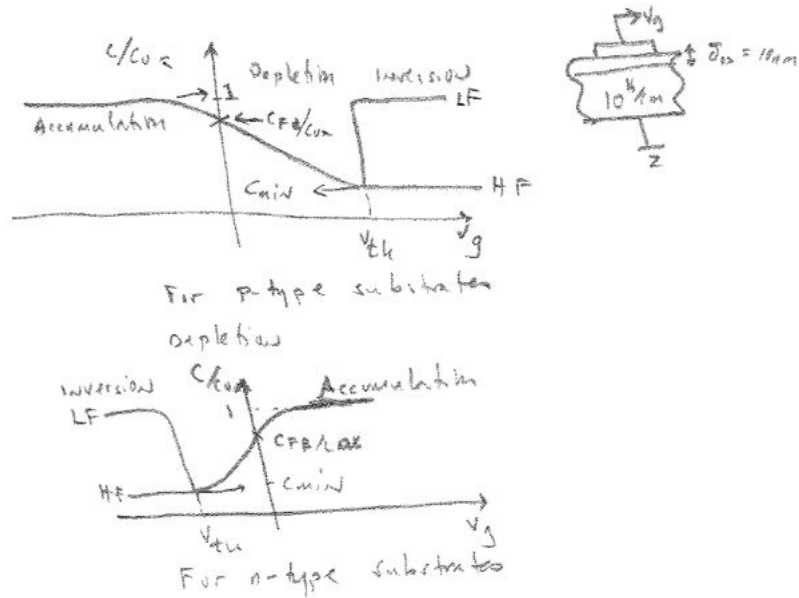 C/Cox
Depletion INVERSION
1
LF
Accumulation
CFB/Cox
Cmin
HF
Vth
Vg
For p-type substrates
Vg
= 10nm
Depletion
C/Cox
INVERSION
Accumulation
LF
1
CFB/Cox
Cmin
HF
Vg
For n-type substrates